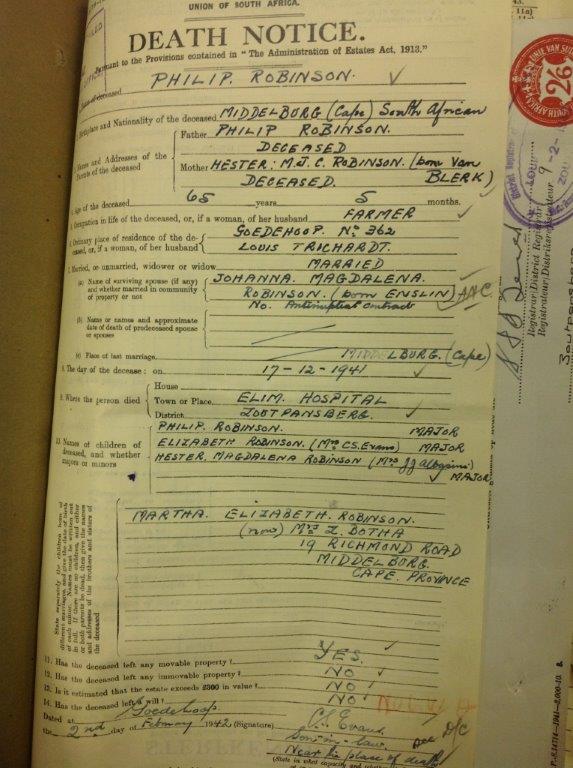 UNION OF SOUTH AFRICA.
DEATH NOTICE.
Pursuant to the Provisions contained in "The Administration of Estates Act, 1913."
PHILIP. ROBINSON.
deceased
Birthplace and Nationality of the deceased MIDDELBURG (Cape) South African
Names and Addresses of the Parents of the deceased
Father PHILIP ROBINSON.
DECEASED
Mother HESTER: M.J.C. ROBINSON. (born Van BLERK)
DECEASED.
Age of the deceased 65 years 5 months.
Occupation in life of the deceased, or, if a woman, of her husband FARMER
Ordinary place of residence of the deceased, or, if a woman, of her husband GOEDEHOOP. No 362
LOUIS TRICHARDT.
Married, or unmarried, widower or widow MARRIED
(a) Name of surviving spouse (if any) and whether married in community of property or not JOHANNA. MAGDALENA.
ROBINSON. (born ENSLIN) ANC
No. Antinuptial contract
(b) Name or names and approximate date of death of predeceased spouse or spouses
(c) Place of last marriage. MIDDELBURG. (Cape)
8. The day of the decease: on 17-12-1941
9. Where the person died
House
Town or Place ELIM. HOSPITAL
District ZOUTPANSBERG.
10. Names of children of deceased, and whether majors or minors
PHILIP. ROBINSON. MAJOR
ELIZABETH ROBINSON. (Mrs C.S. Evans) MAJOR
HESTER, MAGDALENA ROBINSON (Mrs JJ Albasini) MAJOR
State separately the children born of different marriages, and give the date of birth of each minor. Names must be written out in full. If there are no children, and either or both parents be dead, then give the names and addresses of the brothers and sisters of the deceased
MARTHA. ELIZABETH. ROBINSON.
(now) Mrs L. BOTHA
19 RICHMOND ROAD
MIDDELBURG.
CAPE. PROVINCE
11. Has the deceased left any movable property? YES.
12. Has the deceased left any immovable property? NO
13. Is it estimated that the estate exceeds £300 in value? NO
14. Has the deceased left a will? NO
Dated at Goedehoop.
the 2nd day of February 1942 (Signature) C.S. Evans
Son in law.
Near the place of death
See D/C
Registrar/District Registrar
Registrateur/Distriksregistrateur
2/6